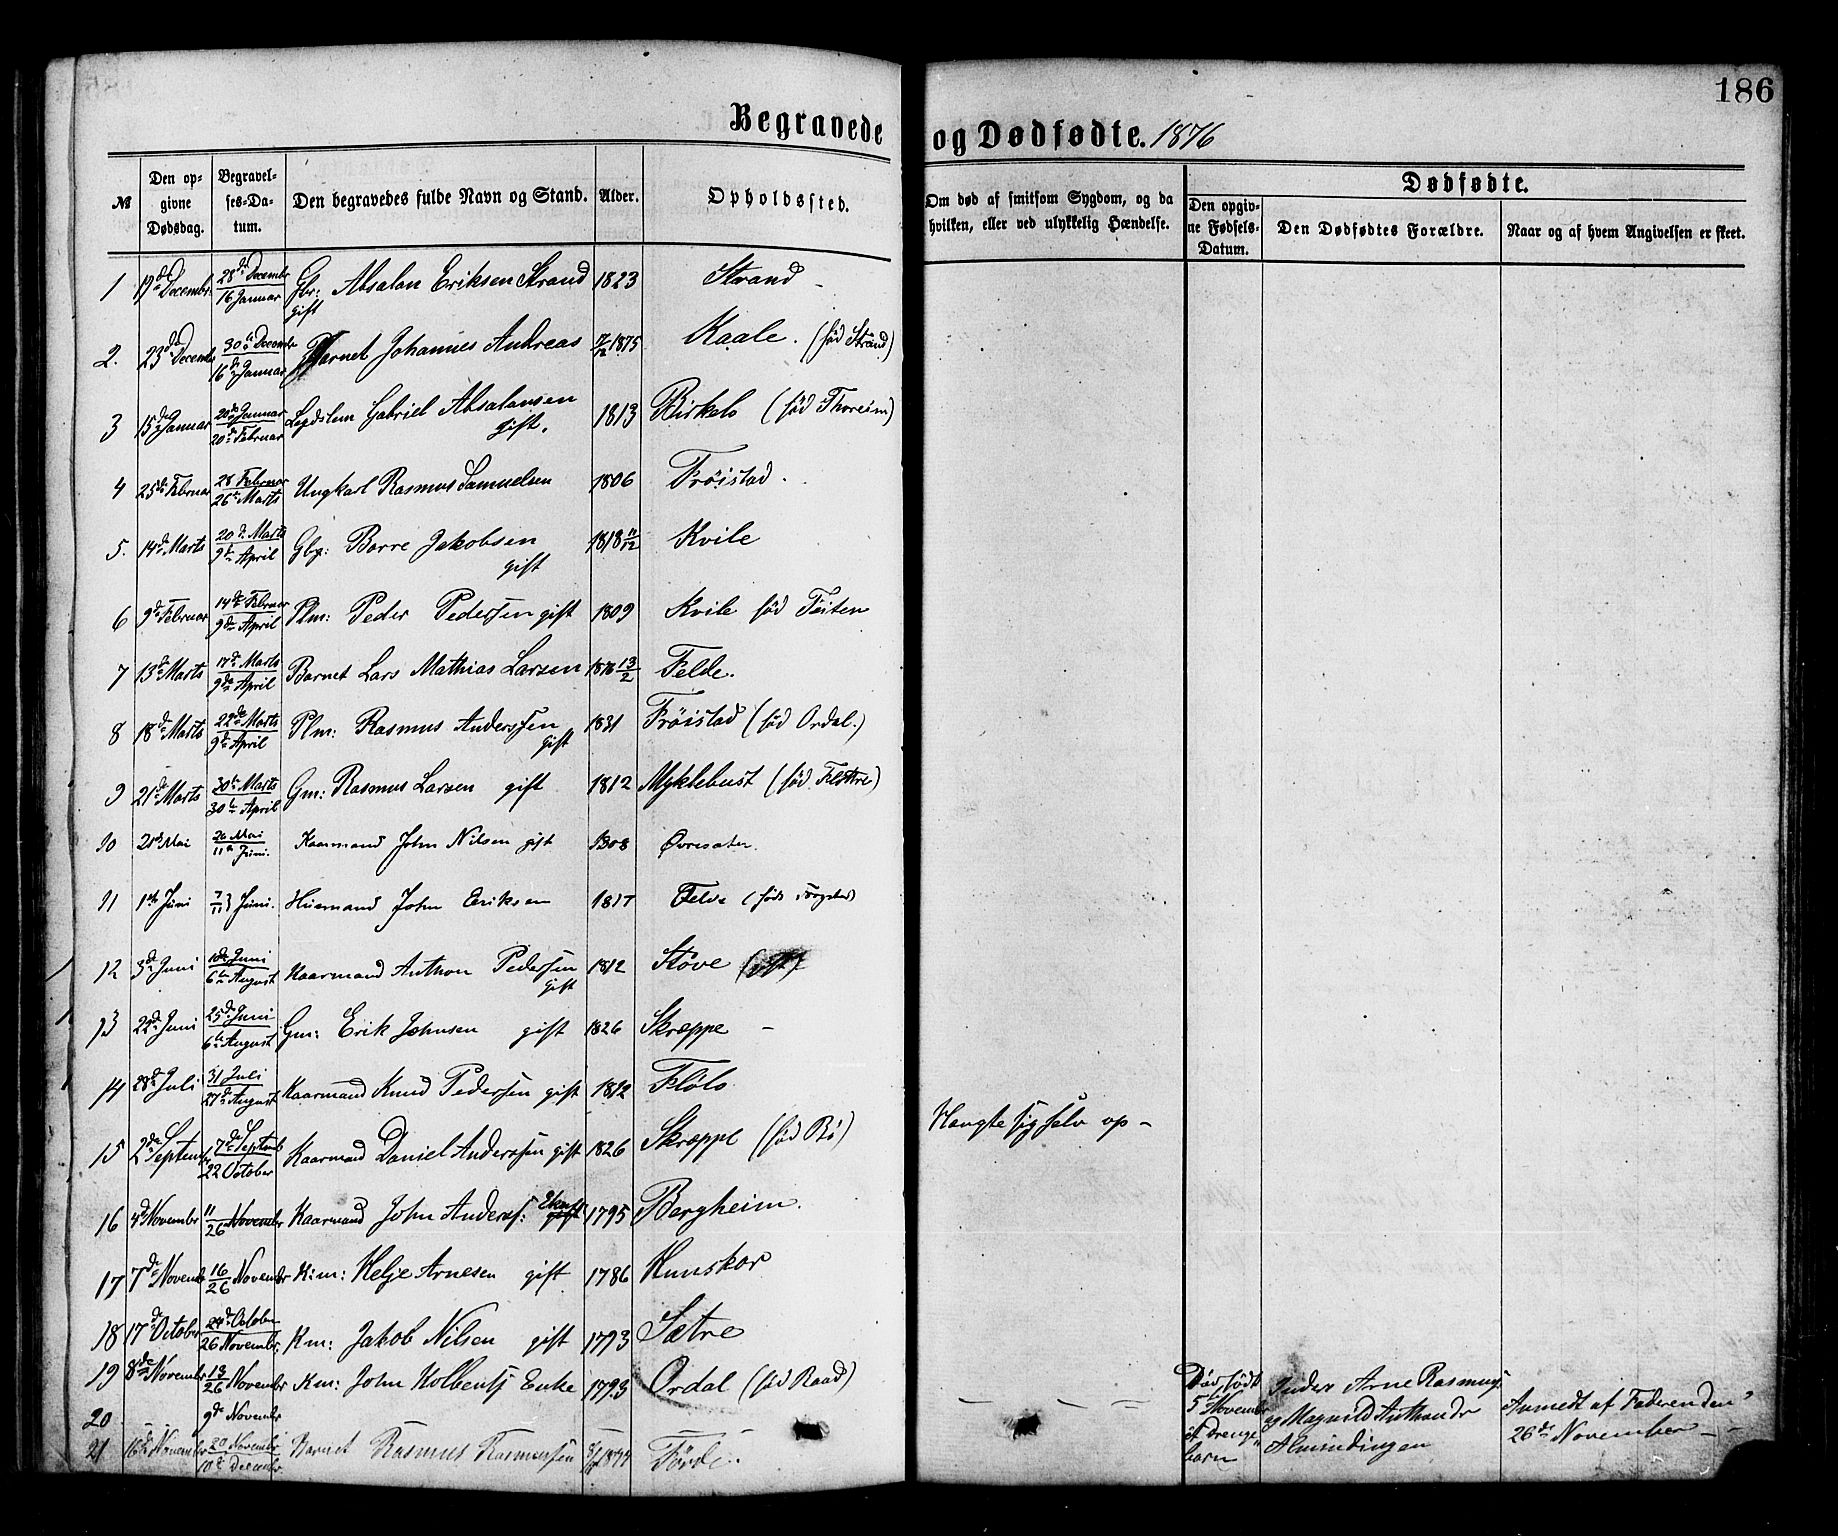 186
Begravede og Dødfødte. 1876
№ Den opgivne Dødsdag. Begravelses-Datum. Den begravedes fulde Navn og Stand. Alder. Opholdssted. Om død af smitsom Sygdom, og da hvilken, eller ved ulykkelig Hændelse. Dødfødte. Den opgivne Fødsels-Datum. Den Dødfødtes Forældre. Naar og af hvem Angivelsen er skeet.
1 17de Decembr. 28de Decembr 16 Januar Gbr: Absalon Eriksen Strand gift 1823 Strand
2. 23de Decembr 30te Decembr 16de Januar Barnet Johannes Andreas 1875 Kaale. (fød Strand)
3 15de Januar 20de Januar 20de Februar Gabriel Absalonsen gift. 1813 Birkelo (fød Thoreim)
4 25de Februar 28 Februar 26de Marts Ungkarl Rasmus Samuelsen 1806 Frøistad.
5. 14de Marts 20de Marts 9de April Gbr: Borre Jakobsen gift 1818 Kvile
6 9de Februar 14de Februar 9de April Plm: Peder Pedersen gift 1809 Kvile fød Tøiten
7 13de Marts 17de Marts 9de April Barnet Lars Mathias Larsen 1876 13/2 Felde.
8 18de Marts 22de Marts 9de April Plm: Rasmus Anderssen gift 1831 Frøistad (fød Ordal.)
9 21de Marts 30te Marts 30te April Gm: Rasmus Larsen gift 1812 Myklebust (fød Flothre)
10 21de Mai 26 Mai 11te Juni. Kaarmand John Nilsen gift 1808 Øvresæter.
11 1ste Juni 7/11 } Juni. Huusmand John Eriksen 1817 Felde
12 3de Juni 10de Juni 6te August Kaarmand Anthon Pedersen gift 1812 Støve
13 22de Juni 25de Juni 6te August Gm: Erik Johnsen gift 1826 Skreppe
14 28de Juli 31 Juli 27de August Kaarmand Knud Pedersen gift 1812 Flølo
15 2den Septembr 7de Septemb 22 October Kaarmand Daniel Anderssen gift 1826 Skreppe (fød Bø) Hængte sig selv op -
16 4de Novembr 11/26 Novembr Kaarmand John Anders: Enkem gift 1795 Bergheim.
17 7de Novemb 16/26 Novembr Km: Helje Arnesen gift 1786 Hunskor
18 17de October 24de October 26 Novembr. Km: Jakob Nilsen gift 1793 Sætre
19 8de Novembr 13/26 Novembr Km: John Kolbents Enke 1793 Ordal (fød Raad)
20 9de Novembr Dødfødt 5 Novembr et Drengebarn Inders Arne Rasmuss og Magnild Anthondr Almindingen Anmedt af Faderen den 26de November
21 16de Novembr 20 Novembr 10de Decembr. Barnet Rasmus Rasmussen 1874 Førde.